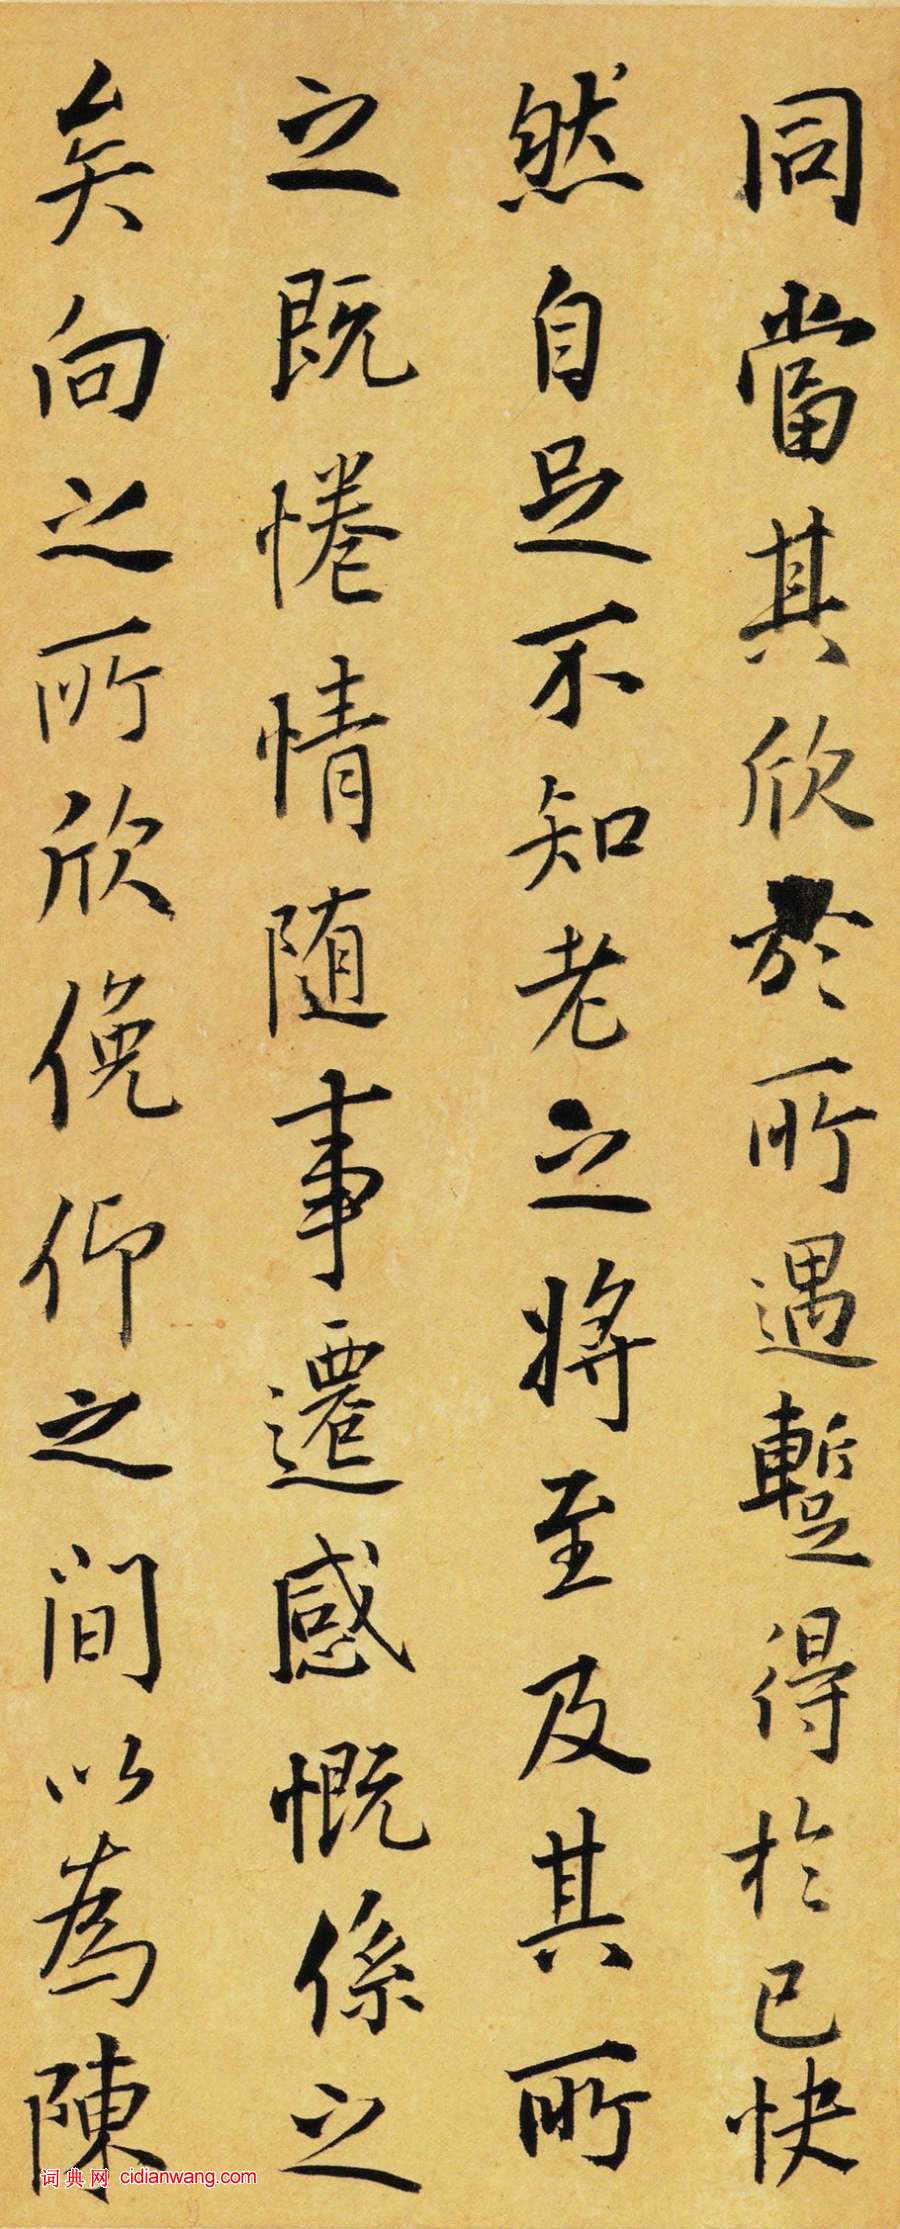 同當其欣於所遇蹔得於己快
然自足不知老之將至及其所
之既惓情随事遷感慨係之
矣向之所欣俛仰之間以為陳
词典网 cidianwang.com